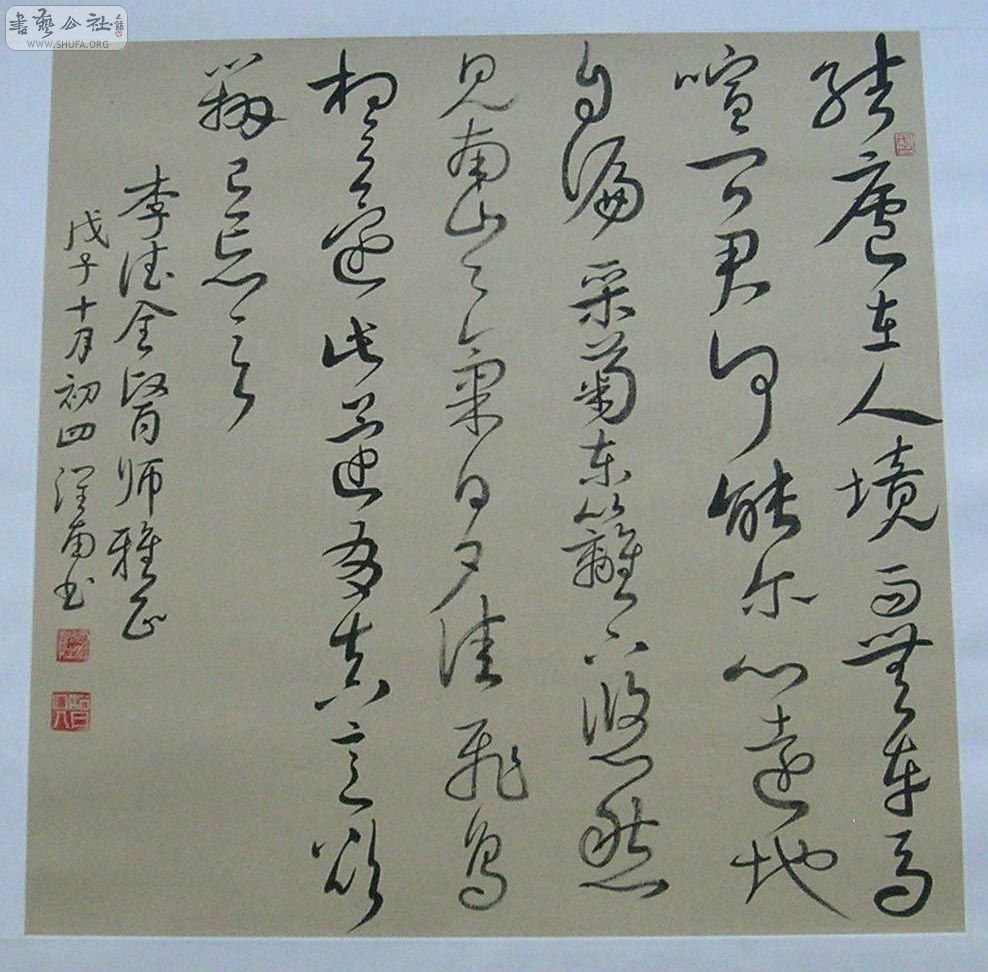 書藝公社
WWW.SHUFA.ORG
結廬在人境而無車馬
喧問君何能尔心遠地
自偏采菊東籬下悠然
見南山山氣日夕佳飛鳥
相與還此還有真意欲
辯已忘言
李德全醫師雅正
戊子十月初四书